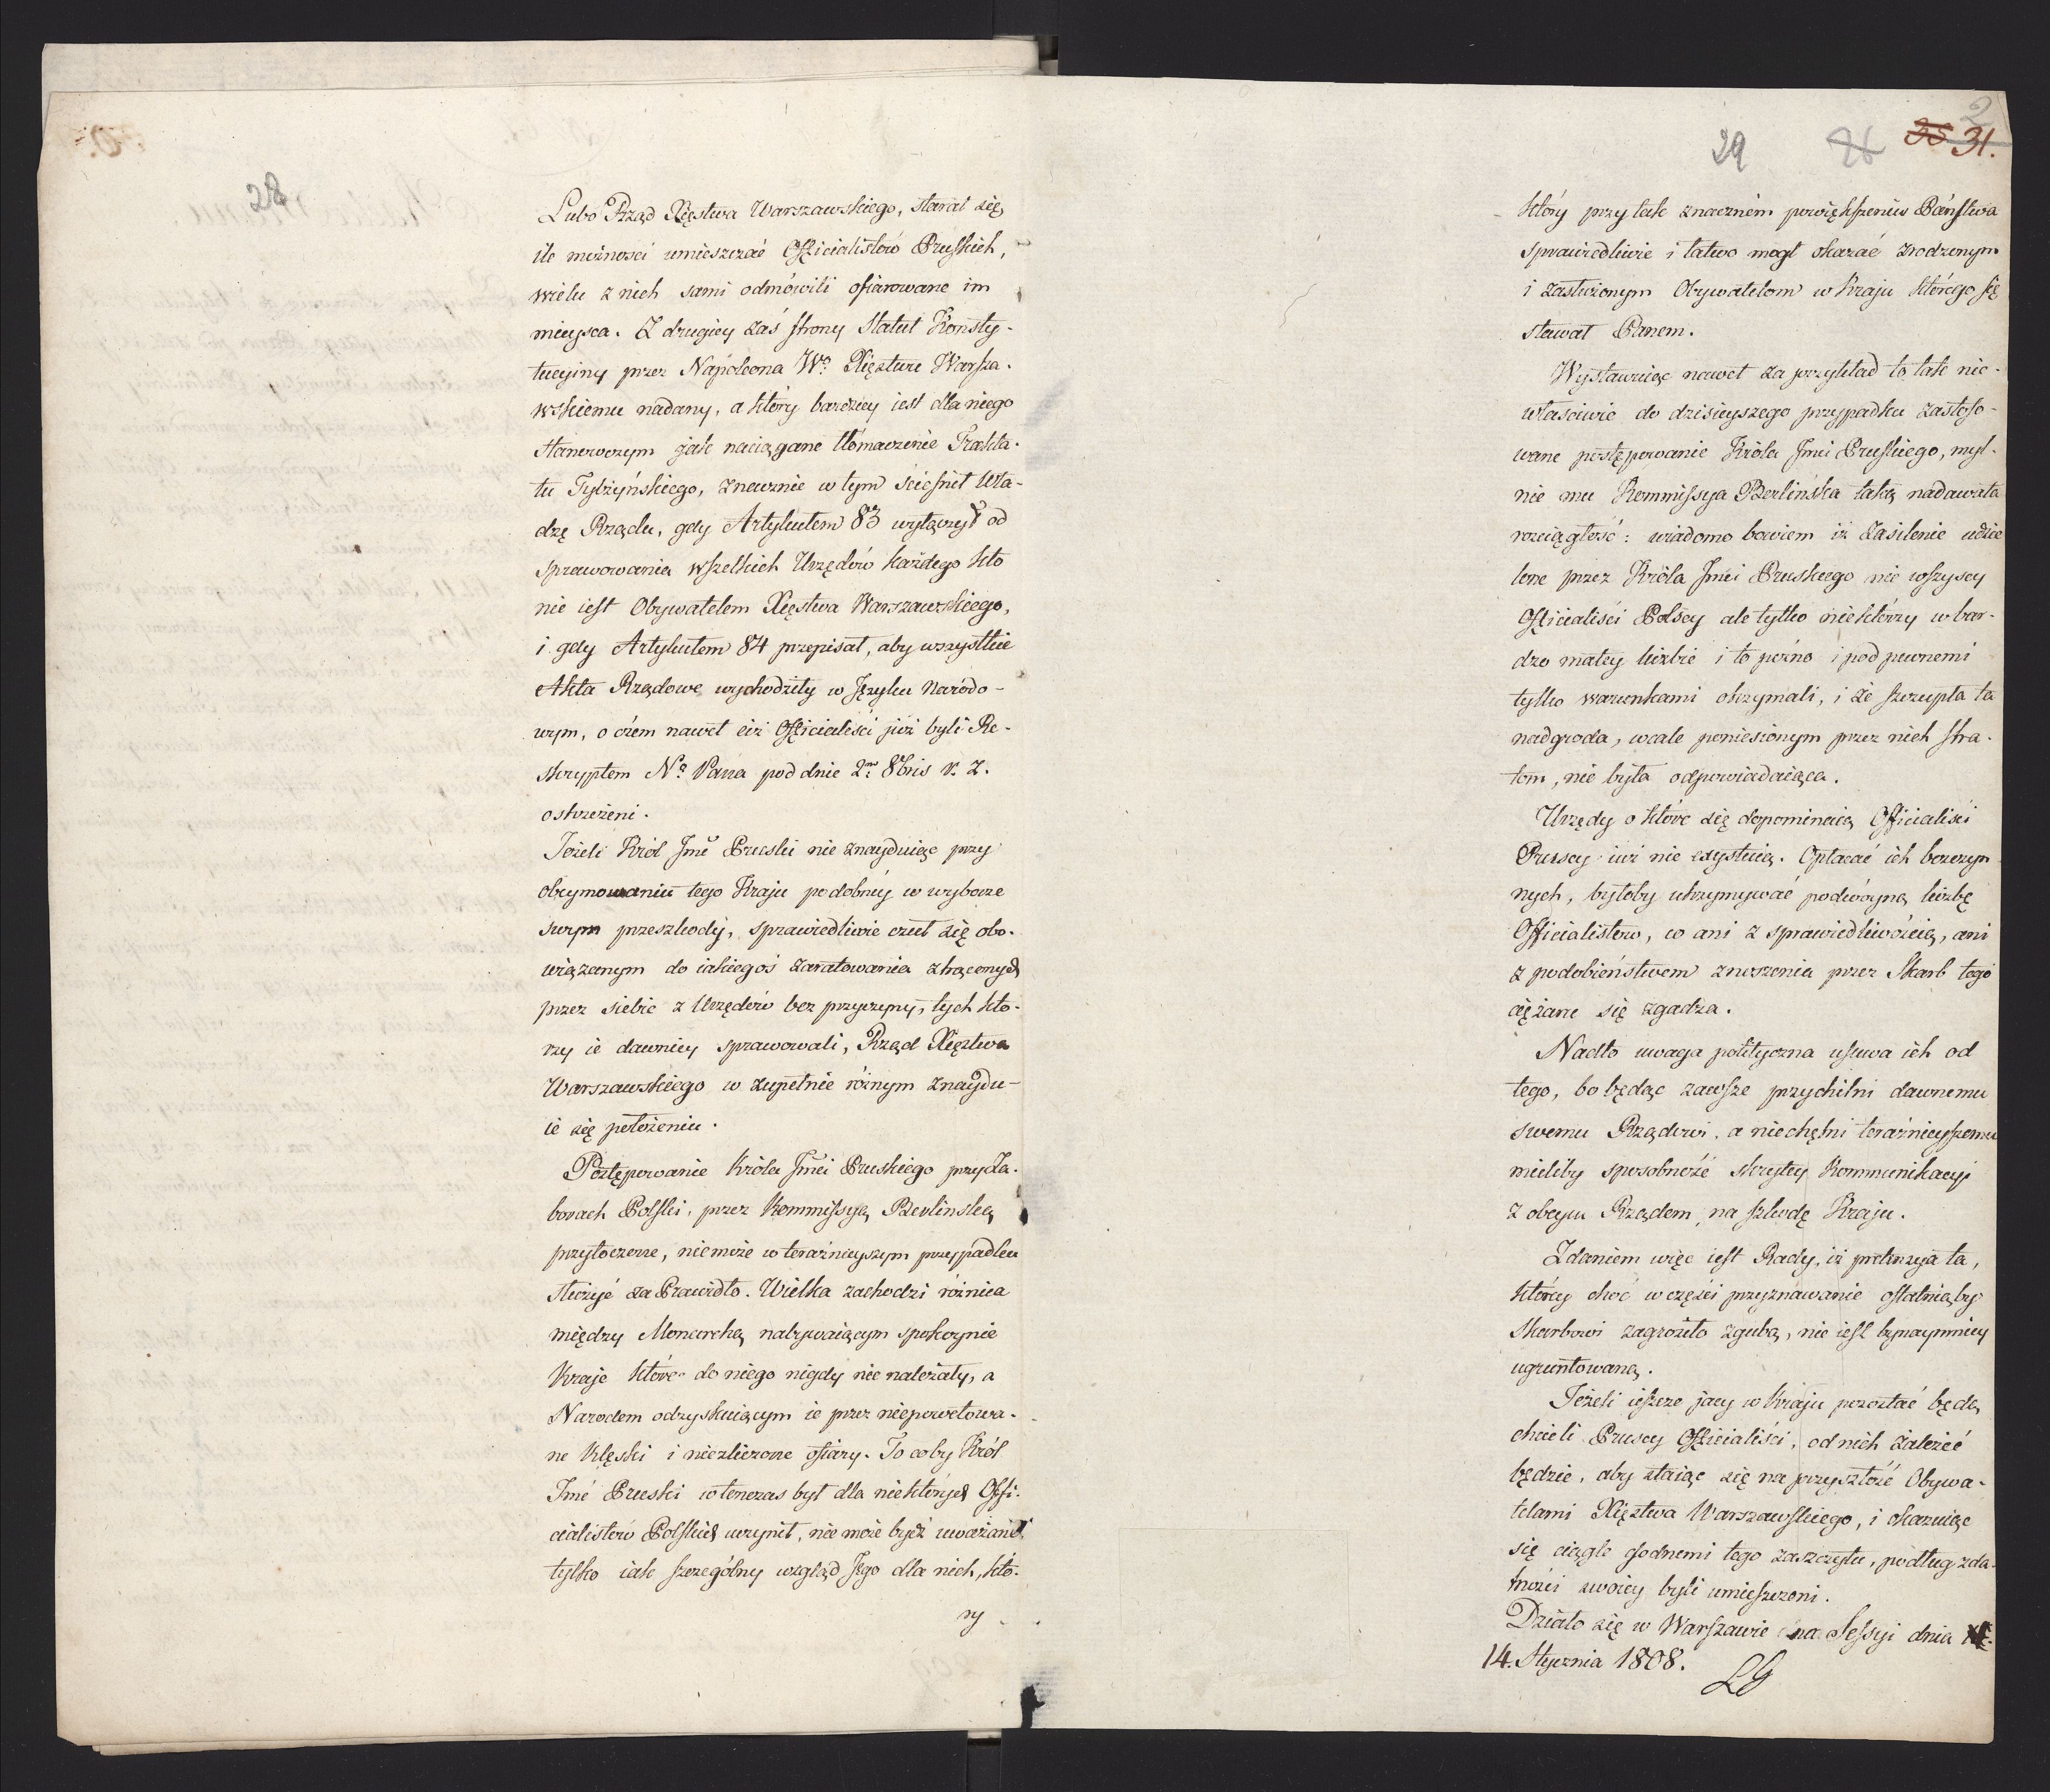 28
Lubo Rząd Xięstwa Warszawskiego, starał się
ile możności umieszczać Officialistów Pruskich,
wielu z nich sami odmówili ofiarowane im
mieysca. Z drugiey zaś strony Statut Konsty-
tucyiny przez Napoleona Wº Xięztwu Warsza-
wskiemu nadany, a który bardziey iest dla niego
stanowczym jak naciągane tłómaczenie Trakta-
tu Tylżyńskiego, znacznie w tym ścieśnił Wła-
dzę Rządu, gdy Artykułem 83 wyłączył od
sprawowania wszelkich Urzędów każdego kto
nie iest Obywatelem Xięstwa Warszawskiego,
i gdy Artykułem 84 przepisał, aby wszystkie
Akta Rządowe wychodziły w Języku Narodo-
wym, o czém nawet ciż Officialiści już byli Re-
skryptem Nº Pana pod dnie 2. 8bris r. z.
ostrzeżeni.
Jeżeli Król Jmć Pruski nie znayduiąc przy
obeymowaniu tego Kraju podobnéy w wyborze
swym przeszkody, sprawiedliwie czuł się obo-
wiązanym do iakiegoś zaratowania zrąconych
przez siebie z Urzędów bez przyczyny, tych któ-
rzy ie dawniey sprawowali, Rząd Xięztwa
Warszawskiego w zupełnie różnym znaydu-
ie się położeniu.
Postępowanie Króla Jmci Pruskiego przy Za-
borach Polski, przez Kommissyą Berlinską
przytoczone, niemoże w teraźnieyszym przypadku
służyć za Prawidło. Wielka zachodzi różnica
między Monarchą nabywaiącym spokoynie
Kraje które do niego nigdy nie należały, a
Narodem odzyskuiącym ie przez niepowetowa-
ne klęski i niezliczone ofiary. To coby Król
Jmć Pruski wtenczas był dla niektórych Offi-
cialistów Polskich uczynił, nie może bydź uważane
tylko iak szczególny wzgląd Jego dla nich, któ-
ry
2
29 26 30 31.
który przy tak znaczném powiększeniu Państwa
sprawiedliwie i łatwo mogł okazać zrodzonym
i zasłużonym Obywatelom w Kraju którego się
stawał Panem.
Wystawuiąc nawet za przykład to tak nie-
właściwie do dzisieyszego przypadku zastoso-
wane postępowanie Króla Jmci Pruskiego, myl-
nie mu Kommissya Berlińska taką nadawała
rozciągłość: wiadomo bowiem iż zasilenie udzie
lone przez Króla Jmci Pruskiego nie wszyscy
Officialiści Polscy ale tylko niektórzy w bar-
dzo małey liczbie i to poźno i pod pewnemi
tylko warunkami otrzymali, i że szczupła ta
nadgroda, wcale poniesionym przez nich stra-
tom, nie była odpowiadaiąca.
Urzędy o które się dopominaią Officialiści
Pruscy iuż nie exystuią. Opłacać ich bezczyn
nych, byłoby utrzymywać podwóyną liczbę
Officialistów, co ani z sprawiedliwością, ani
z podobieństwem znoszenia przez Skarb tego
ciężaru się zgadza.
Nadto uwaga polityczna usuwa ich od
tego, bo będąc zawsze przychilni dawnemu
swemu Rządowi, a niechętni teraźnieyszemu
mieliby sposobność skrytey Kommunikacyi
z obcym Rządem, na szkodę Kraju.
Zdaniem więc iest Rady, iż pretensya ta,
którey choć w części przyznawanie ostatniąby
Skarbowi zagroziło zgubą, nie iest bynaymniey
ugruntowaną.
Jeżeli ieszcze jacy w Kraju pozostać będą
chcieli Pruscy Officialiści, od nich zależeć
będzie, aby staiąc się na przyszłość Obywa-
telami Xięztwa Warszawskiego, i okazuiąc
się ciągle godnemi tego zaszczytu, podług zda-
tności swoiey byli umieszczeni.
Działo się w Warszawie na Sessyi dnia
14. Stycznia 1808.
LG